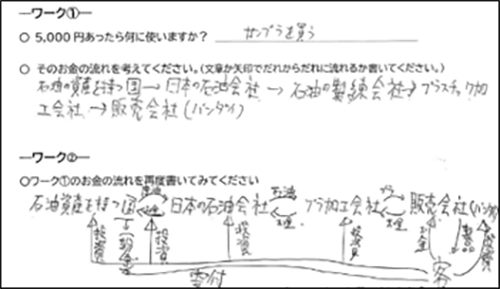 ―ワーク①―
○ 5,000円あったら何に使いますか? ガンプラを買う
○ そのお金の流れを考えてください。(文章か矢印でだれからだれに流れるか書いてください。)
石油の資産を持つ国→日本の石油会社→石油の製練会社→プラスチック加
工会社→販売会社(バンダイ)
―ワーク②―
○ワーク①のお金の流れを再度書いてみてください
原油 石油 プラ
石油資産を持つ国 日本の石油会社 プラ加工会社 販売会社(バンダイ)
お金 お金 お金
投資 税金 投資 投資 投資 お金 投資
寄付 客